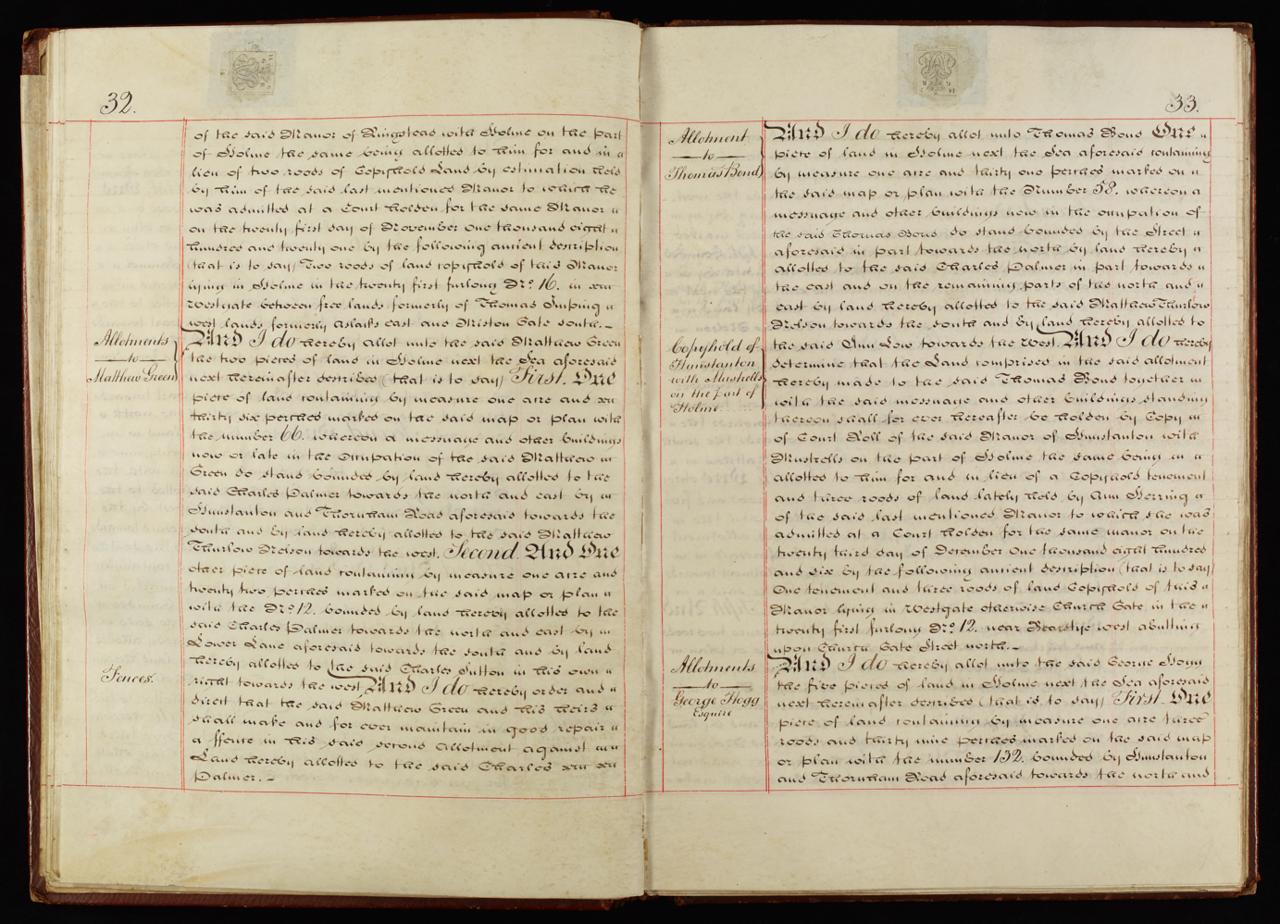 32.
of the said Manor of Ringstead with Holme on the part
of Holme the same being allotted to him for and in
lieu of two roods of Copyhold Land by estimation held
by him of the said last mentioned Manor to which he
was admitted at a Court holden for the same Manor
on the twenty first day of November One thousand eight
hundred and twenty one by the following ancient description
(that is to say) Two roods of land copyhold of this Manor
lying in Holme in the twenty first furlong No. 16. in
Westgate between free lands formerly of Thomas Inping
west lands formerly Aslaks east and Miston Gate south.
Allotments
to
Matthew Green
And I do hereby allot unto the said Matthew Green
the two pieces of land in Holme next the Sea aforesaid
next hereinafter described (that is to say) First. One
piece of land containing by measure one acre and
thirty six perches marked on the said map or plan with
the number 66. whereon a messuage and other buildings
now or late in the Occupation of the said Matthew
Green do stand bounded by land hereby allotted to the
said Charles Palmer towards the north and east by
Hunstanton and Thornham Road aforesaid towards the
south and by land hereby allotted to the said Matthew
Thurlow Nelson towards the west. Second And One
other piece of land containing by measure one acre and
twenty two perches marked on the said map or plan
with the No. 12. bounded by land hereby allotted to the
said Charles Palmer towards the north and east by
Lower Lane aforesaid towards the south and by land
hereby allotted to the said Charles Sutton in his own
Fences.
right towards the west And I do hereby order and
direct that the said Matthew Green and his heirs
shall make and for ever maintain in good repair
a ffence in his said second Allotment against
Land hereby allotted to the said Charles
Palmer.
33.
Allotment
to
Thomas Bond
And I do hereby allot unto Thomas Bond One
piece of land in Holme next the Sea aforesaid containing
by measure one acre and thirty one perches marked on
the said map or plan with the Number 58. whereon a
messuage and other buildings now in the occupation of
the said Thomas Bond do stand bounded by the Street
aforesaid in part towards the north by land hereby
allotted to the said Charles Palmer in part towards
the east and on the remaining parts of the north and
east by land hereby allotted to the said Matthew Thurlow
Nelson towards the south and by land hereby allotted to
Copyhold of
Hunstanton
with Mustrells
on the part of
Holme.
the said Ann Low towards the West. And I do hereby
determine that the Land comprised in the said allotment
hereby made to the said Thomas Bond together
with the said messuage and other buildings standing
thereon shall for ever hereafter be holden by Copy
of Court Roll of the said Manor of Hunstanton with
Mustrells on the part of Holme the same being
allotted to him for and in lieu of a Copyhold tenement
and three roods of land lately held by Ann Herring
of the said last mentioned Manor to which she was
admitted at a Court holden for the same manor on the
twenty third day of December One thousand eight hundred
and six by the following ancient description (that is to say)
One tenement and three roods of land Copyhold of this
Manor lying in Westgate otherwise Church Gate in the
twenty first furlong No. 12. near west abutting
upon Church Gate Street north.
Allotments
to
George Hogg
Esquire
And I do hereby allot unto the said George Hogg
the five pieces of land in Holme next the Sea aforesaid
next hereinafter described (that is to say) First. One
piece of land containing by measure one acre three
roods and thirty nine perches marked on the said map
or plan with the number 132. bounded by Hunstanton
and Thornham Road aforesaid towards the north and